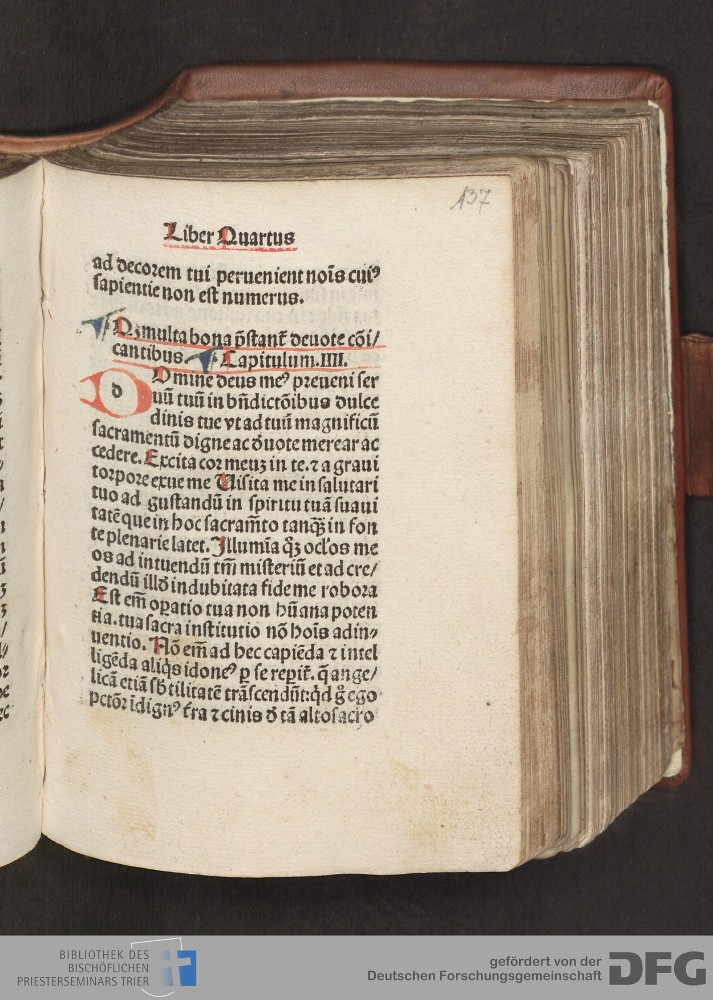 137
Liber Quartus
ad decorem tui peruenient noīs cuiꝰ
sapientie non est numerus.
Qꝫ multa bona p̄stant̄ deuote cōi/
cantibus. Capitulum.IIII.
dOmine deus meꝰ preueni ser
uū tuū in bn̄dictōibus dulce
dinis tue vt ad tuū magnificū
sacramentū digne ac ďuote merear ac
cedere. Excita cor meuꝫ in te. ⁊ a graui
torpore exue me Uisita me in salutari
tuo ad gustandū in spiritu tuā suaui
tatē que in hoc sacram̄to tanqꝫ̄ in fon
te plenarie latet. Illumīa qꝫ ocl'os me
os ad intuendū tm̄ misteriū et ad cre/
dendū illď indubitata fide me robora
Est em̄ oꝑatio tua non hūana poten
tia. tua sacra institutio nō hoīs adin⸗
uentio. Nō em̄ ad hec capiēda ⁊ intel
ligēda aliq̇s idoneꝰ ꝑ se reꝑit̄. q̄ ange/
licā etiā sb̄tilitatē trāscendūt: qd̓ g̊ ego
pctōr īdignꝰ t̄ra ⁊ cinis ď tā alto sacro
BIBLIOTHEK DES
BISCHÖFLICHEN
PRIESTERSEMINARS TRIER
gefördert von der
Deutschen Forschungsgemeinschaft
DFG